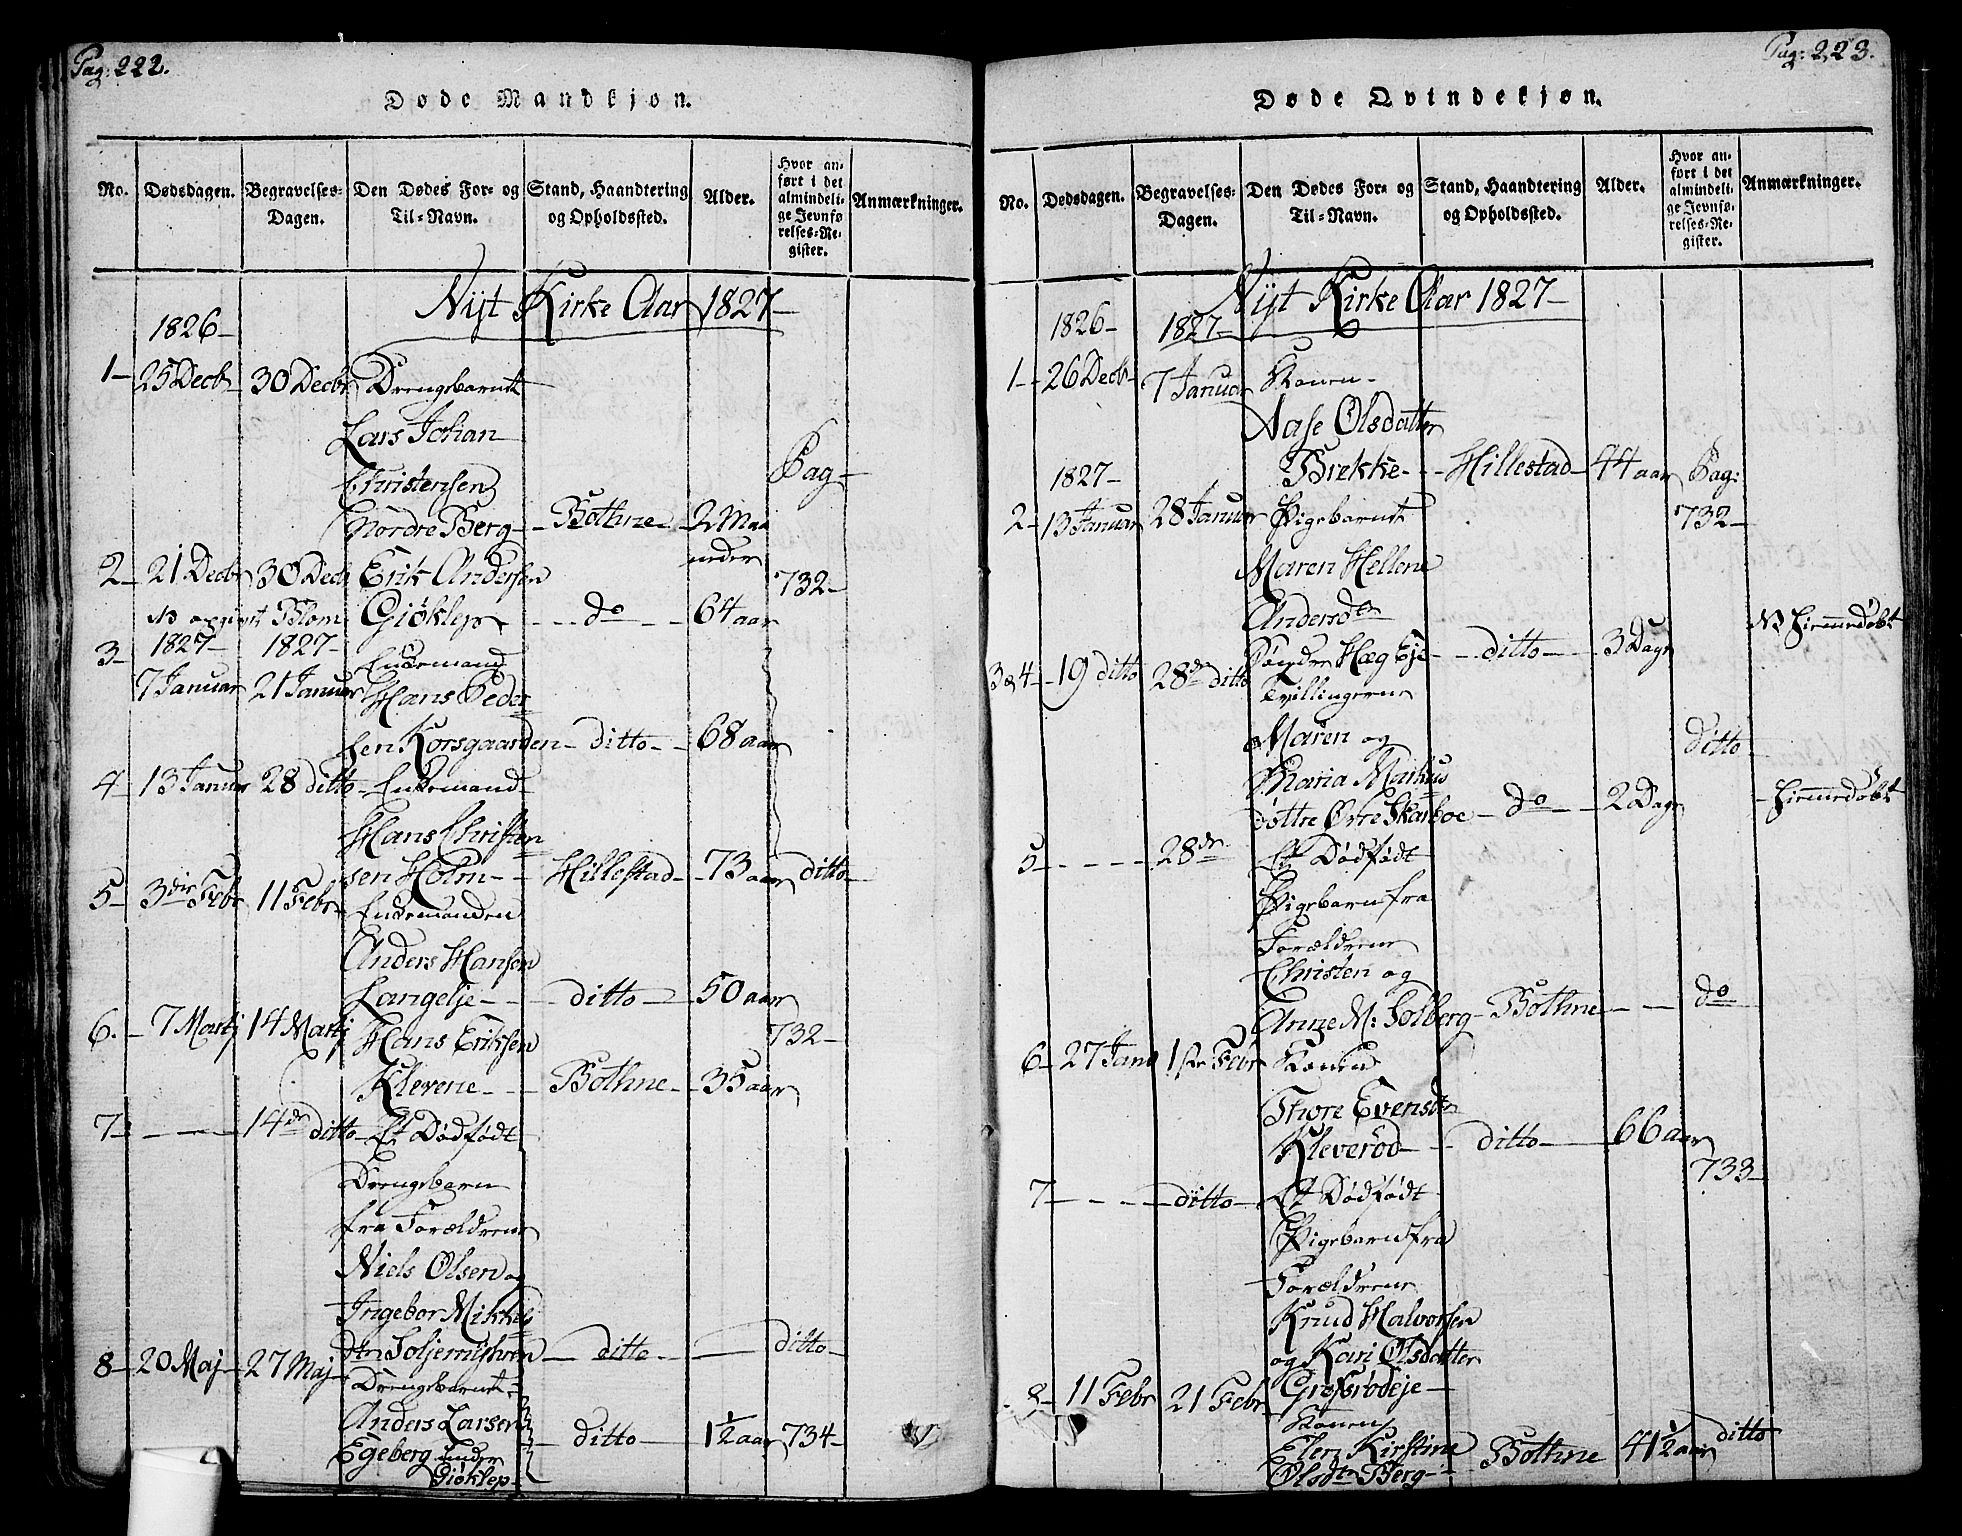 Pag: 222.
Døde Mandkjøn.
No. Dødsdagen. Begravelses- Dagen. Den Dødes For- og Til-Navn. Stand, Haandtering og Opholdssted. Alder. Hvor anført i det almindelige Jevnførelses-Register. Anmærkninger.
Nÿt Kirke Aar 1827
1826
1 25 Decbr 30 Decbr Drengebarnet
Lars Johan
Christensen
Nordre Berg Bothne 2 Maaneder Pag
2 21 Decbr 30 Decb Erik Andersen 732
NB opgivet Blom Giöklep do 64 aar
3 1827 1827 Enkemand
7 Januar 21 Januar Hans Peder
sen Korsgaarden ditto 68 aar
4 13 Januar 28 ditto Enkemand
Hans Christen
sen Holm Hillestad 73 aar ditto
5 3die Febr 11 Febr Enkemanden
Anders Hansen
Langeÿe ditto 50 aar
6. 7 Martj 14 Martj Hans Eriksen 732
Klevene Bothne 35 aar
7 14de ditto Et Dödfödt
Drengebarn
fra Forældrene
Niels Olsen og
Ingebor Mikkels
dtr ditto ditto
8 20 Maj 27 Maj Drengebarnet
Anders Larsen
Egeberg under ditto 1½ aar 734
Giöklep
Pag: 223.
Døde Qvindekjøn.
No. Dødsdagen. Begravelses- Dagen. Den Dødes For- og Til-Navn. Stand, Haandtering og Opholdssted. Alder. Hvor anført i det almindelige Jevnførelses-Register. Anmærkninger.
Nÿt Kirke Aar 1827
1826 1827
1 26 Decbr 7 Januar Konen
Aase Olsdatter
1827 Brekke Hillestad 44 aar Pag:
2 13 Januar 28 Januar Pigebarnet 732
Maren Hellene
Andersdtr
Sönder Hæg Eje ditto 3 Dage NB Hiemmedöbt
3 & 4 19 ditto 28de ditto Tvillingerne
Maren og
Maria Markus
döttre Øvre Skarboe do 2 Dage ditto Hiemmedöbt
5 28de Et Dödfödt
Pigebarn fra
Forældrene
Christen og
Anne M: Solberg Bothne do
6 27 Janu 1ste Febr Konen
Thore Evensdtr
Kleveröd ditto 66 aar
733
7 ditto Et Dödfödt
Pigebarn fra
Forældrene
Knud Halvorsen
og Kari Olsdatter
Grefsrödeje
8 11 Febr 21 Febr Konen
Elen Kirstine
Olsdtr Berg Bothne 41½ aar ditto